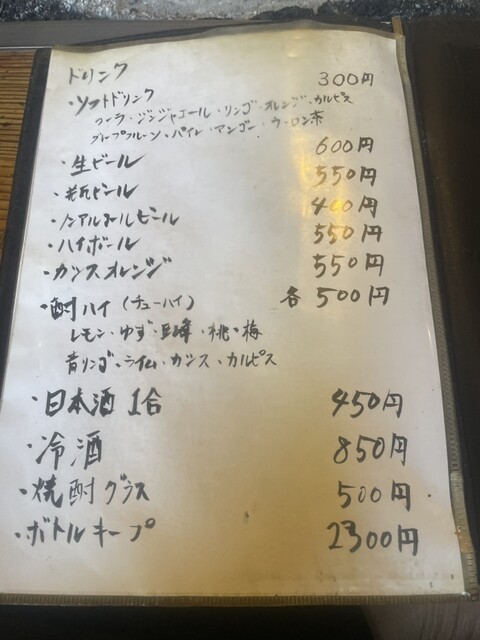 ドリンク
・ソフトドリンク 300円
コーラ・ジンジャエール・リンゴ・オレンジ・カルピス
グレープフルーツ・パイン・マンゴー・ウーロン茶
・生ビール 600円
・瓶ビール 550円
・ノンアルコールビール 400円
・ハイボール 550円
・カシスオレンジ 550円
・酎ハイ(チューハイ) 各500円
レモン・ゆず・巨峰・桃・梅
青リンゴ・ライム・カシス・カルピス
・日本酒1合 450円
・冷酒 850円
・焼酎グラス 500円
・ボトルキープ 2300円